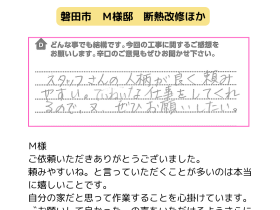 磐田市　M様邸　断熱改修ほか
どんな事でも結構です。今回の工事に関するご感想を
お願いします。辛口のご意見もぜひお聞かせ下さい。
スタッフさんの人柄が良く頼み
やすい。ていねいな仕事をしてくれ
るので、又、ぜひお願いしたい。
M様
ご依頼いただきありがとうございました。
頼みやすいね。と言っていただくことが多いのは本当
に嬉しいことです。
自分の家だと思って作業することを心掛けています。